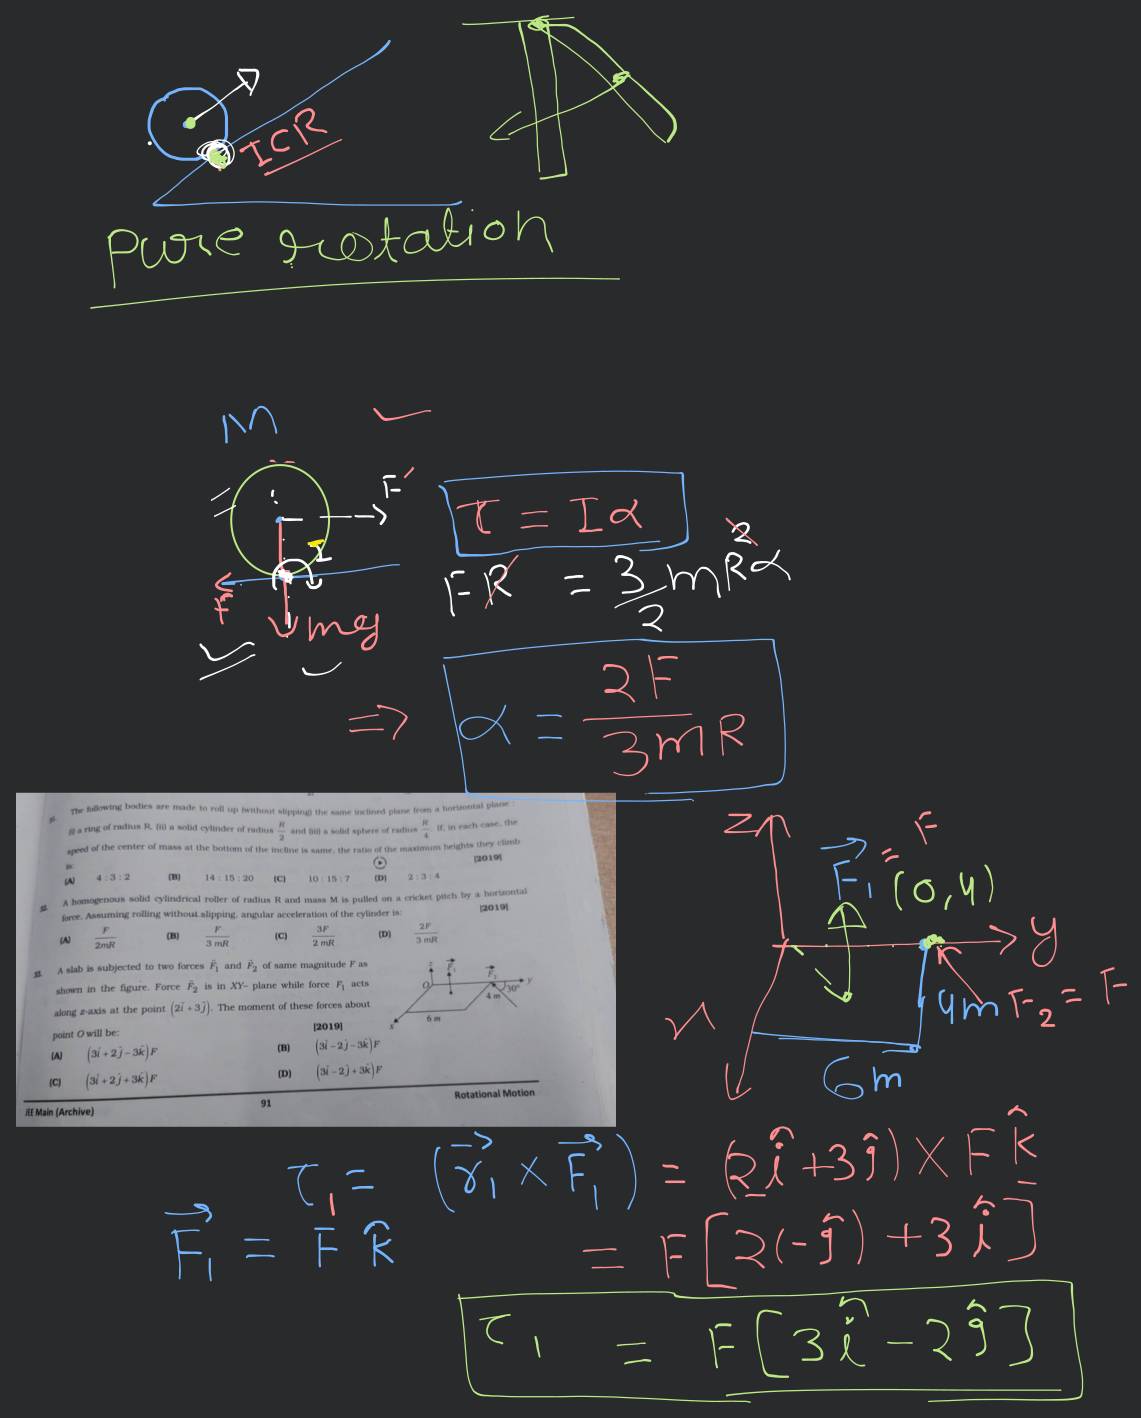 ICR
Pure rotation
M
F
τ = Iα
I
FR = 3/2 mR²α
F
mg
⇒ α = 2F/3mR
The following bodies are made to roll up (without slipping) the same inclined plane from a horizontal plane :
(i) a ring of radius R, (ii) a solid cylinder of radius R/2 and (iii) a solid sphere of radius R/4. If, in each case, the
speed of the center of mass at the bottom of the incline is same, the ratio of the maximum heights they climb
is:
[2019]
(A) 4 : 3 : 2 (B) 14 : 15 : 20 (C) 10 : 15 : 7 (D) 2 : 3 : 4
A homogenous solid cylindrical roller of radius R and mass M is pulled on a cricket pitch by a horizontal
force. Assuming rolling without slipping, angular acceleration of the cylinder is: [2019]
(A) F/2mR (B) F/3 mR (C) 3F/2 mR (D) 2F/3 mR
A slab is subjected to two forces F⃗₁ and F⃗₂ of same magnitude F as
shown in the figure. Force F⃗₂ is in XY- plane while force F₁ acts
along z-axis at the point (2i⃗ + 3j⃗). The moment of these forces about
point O will be: [2019]
(A) (3î + 2ĵ − 3k̂)F (B) (3î − 2ĵ − 3k̂)F
(C) (3î + 2ĵ + 3k̂)F (D) (3î − 2ĵ + 3k̂)F
z
F⃗₁
F⃗₂
y
O
30°
4 m
6 m
x
JEE Main (Archive) 91 Rotational Motion
Z
F⃗₁ = F
(0,4)
y
4m
F₂ = F
x
6m
τ₁ = (r⃗₁ × F⃗₁) = (2î + 3ĵ) × F k̂
F⃗₁ = F k̂
= F[2(-ĵ) + 3î]
τ₁ = F[3î − 2ĵ]